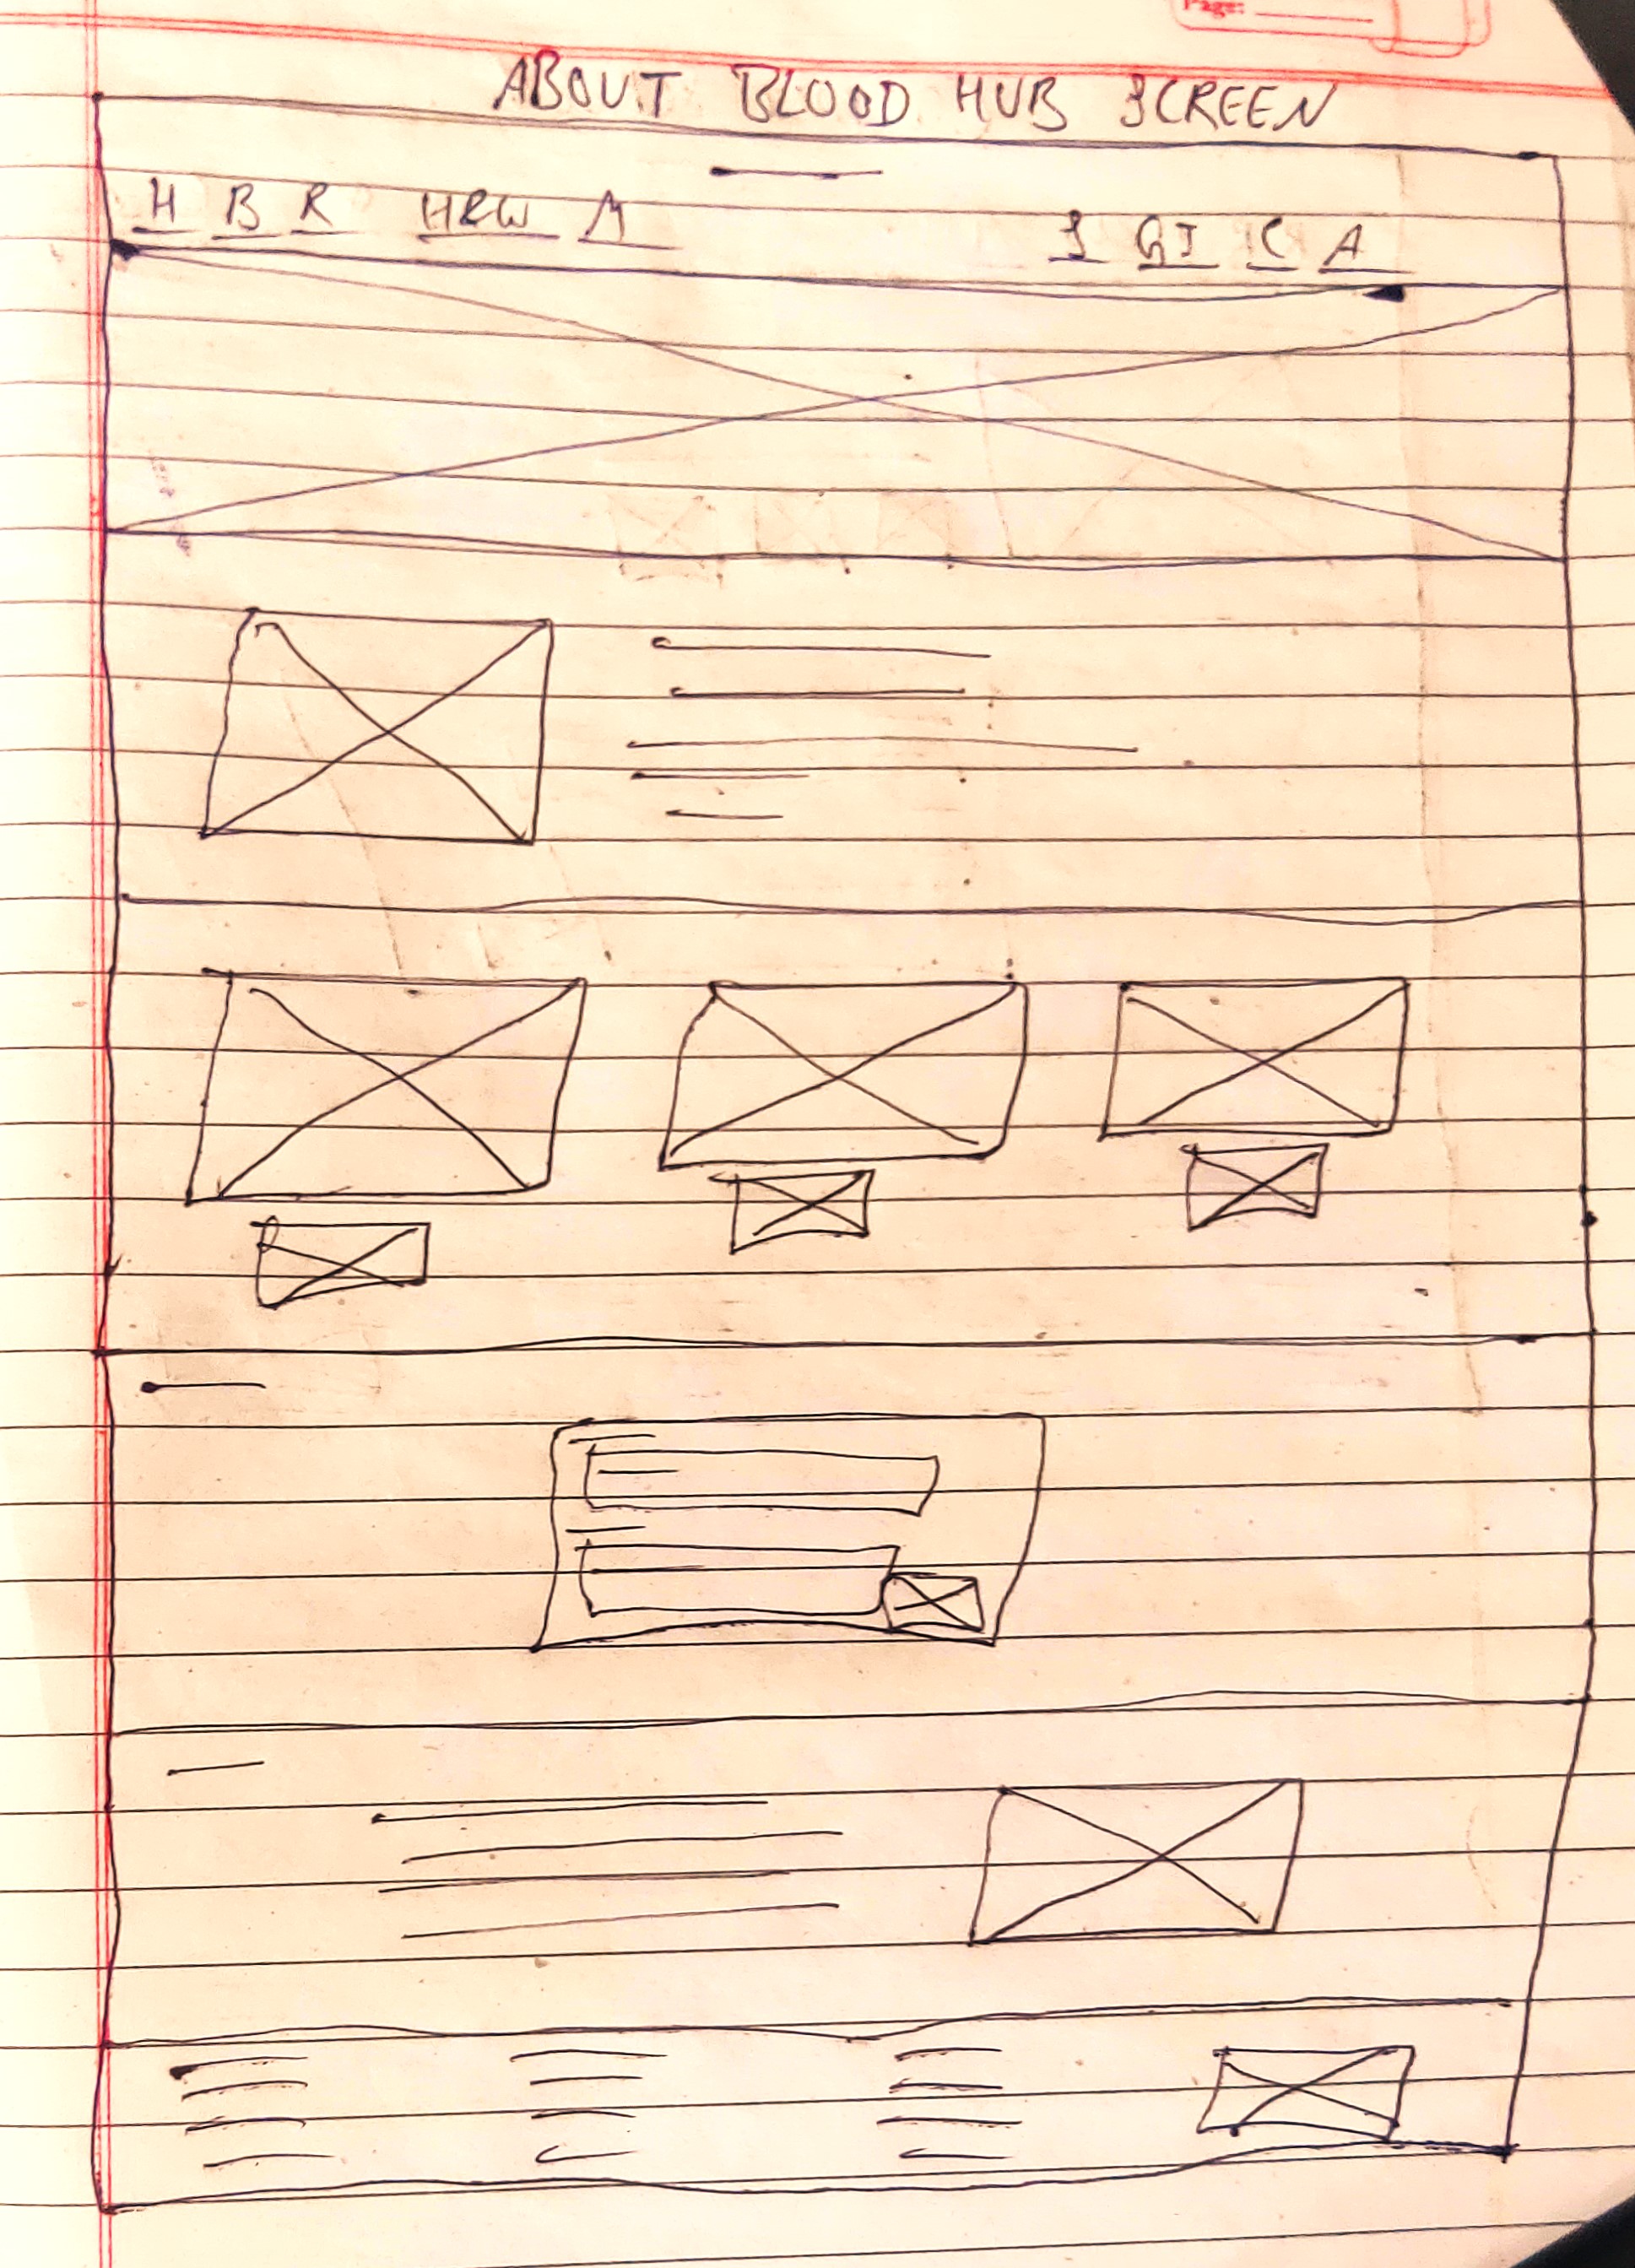 Page:
ABOUT BLOOD HUB SCREEN
H B R HRW M
S GI C A